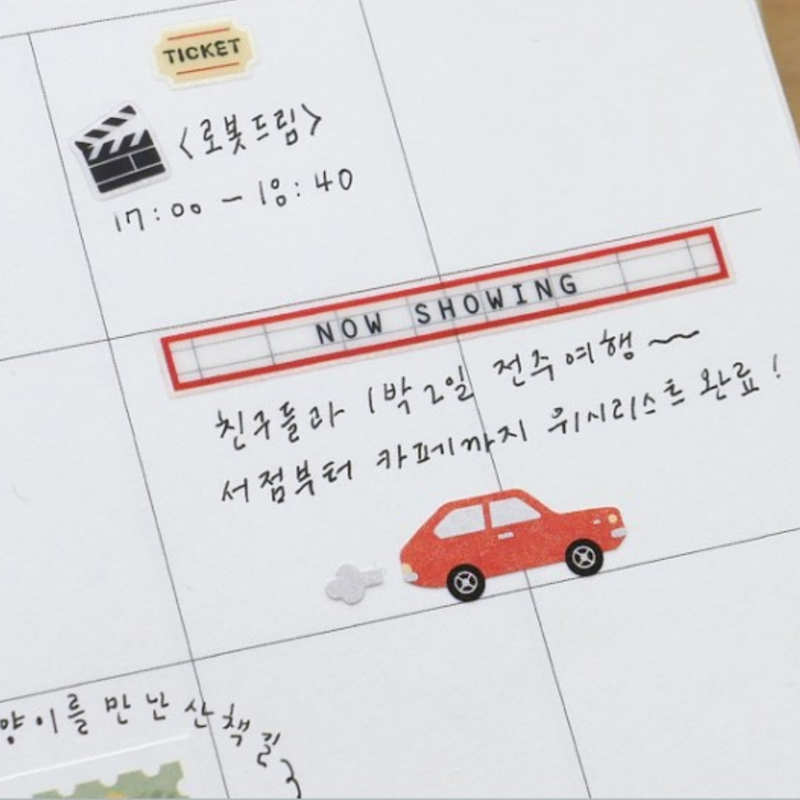 TICKET
<로봇드림>
17:00 - 18:40
NOW SHOWING
친구들과 1박 2일 전주여행~
서점부터 카페까지 위시리스트 완료!
양이를 만난 산책길